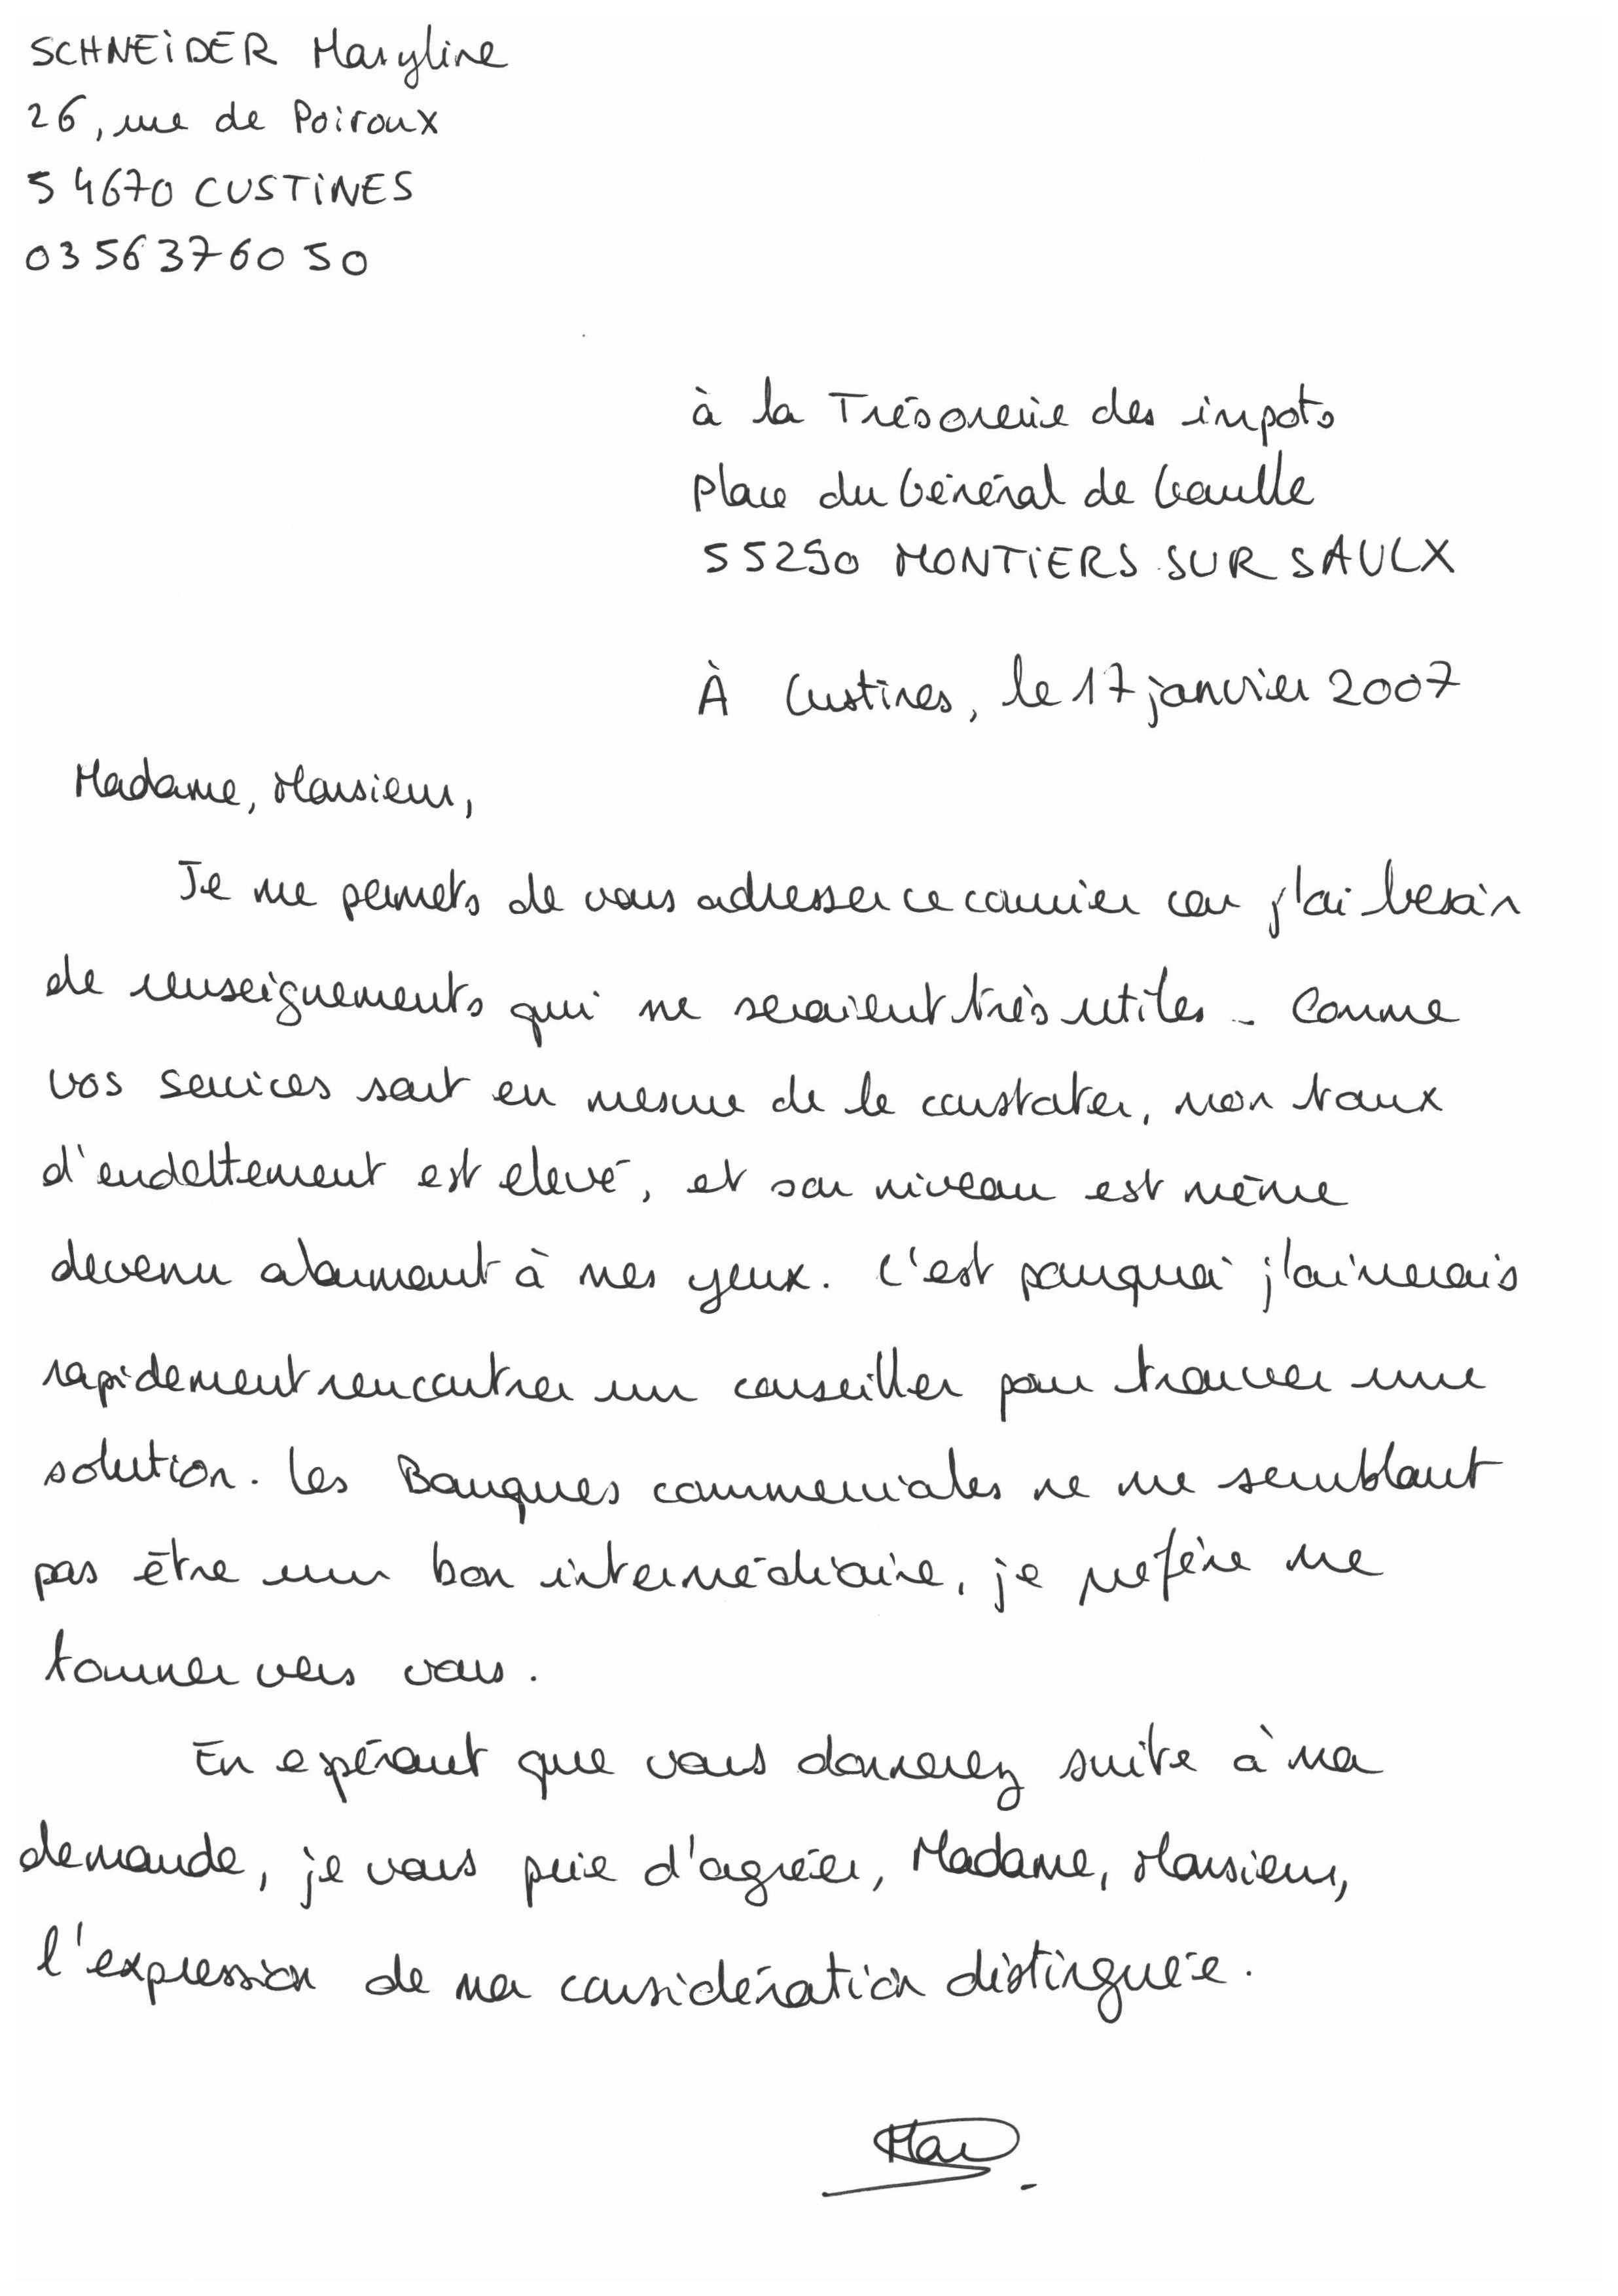 SCHNEIDER Maryline
26, rue de Poiroux
54670 CUSTINES
0356376050
à la Trésorerie des impots
Place du Général de Gaulle
55290 MONTIERS SUR SAULX
À Custines, le 17 janvier 2007
Madame, Monsieur,
Je me permets de vous adresser ce courrier car j'ai besoin
de renseignements qui me seraient très utiles. Comme
vos services sont en mesure de le constater, mon taux
d'endettement est elevé, et son niveau est même
devenu alarmant à mes yeux. C'est pourquoi j'aimerais
rapidement rencontrer un conseiller pour trouver une
solution. Les Banques commerciales ne me semblant
pas être un bon intermédiaire, je prefère me
tourner vers vous.
En epérant que vous donnerez suite à ma
demande, je vous prie d'agréer, Madame, Monsieur,
l'expression de ma considération distinguée.
Mar